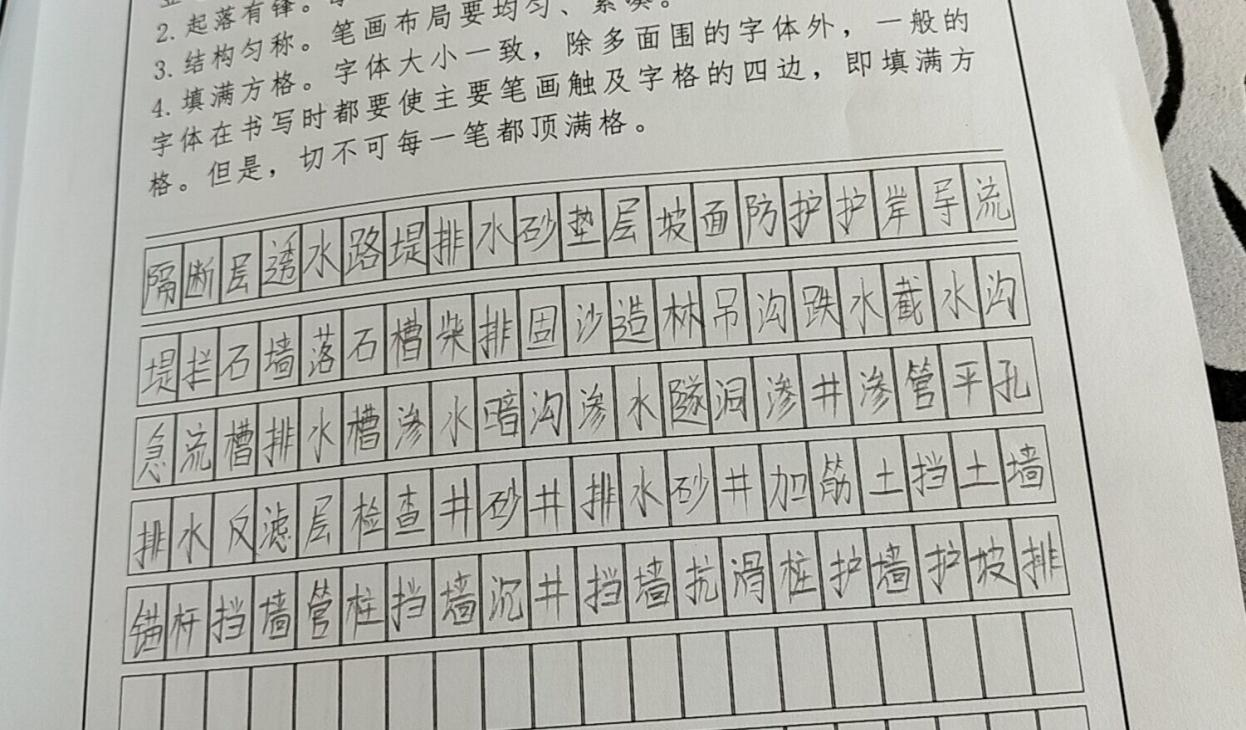 2. 起落有锋。
3. 结构匀称。笔画布局要均匀、紧凑。
4. 填满方格。字体大小一致，除多面围的字体外，一般的
字体在书写时都要使主要笔画触及字格的四边，即填满方
格。但是，切不可每一笔都顶满格。
隔断层透水路堤排水砂垫层坡面防护护岸导流
堤拦石墙落石槽柴排固沙造林吊沟跌水截水沟
急流槽排水槽渗水暗沟渗水隧洞渗井渗管平孔
排水反滤层检查井砂井排水砂井加筋土挡土墙
锚杆挡墙管柱挡墙沉井挡墙抗滑桩护墙护坡排